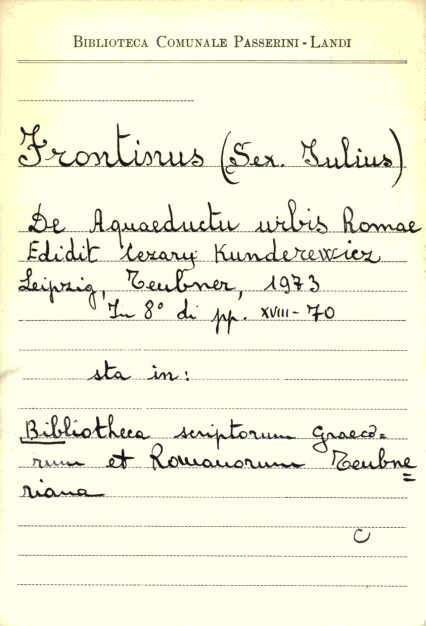 BIBLIOTECA COMUNALE PASSERINI - LANDI
Frontinus (Sex. Iulius)
De Aquaeductu urbis Romae
Edidit Cezary Kunderewicz
Leipzig, Teubner, 1973
In 8° di pp. XVIII - 70
sta in:
Bibliotheca scriptorum Graeco=
rum et Romanorum Teubne
=
riana
C